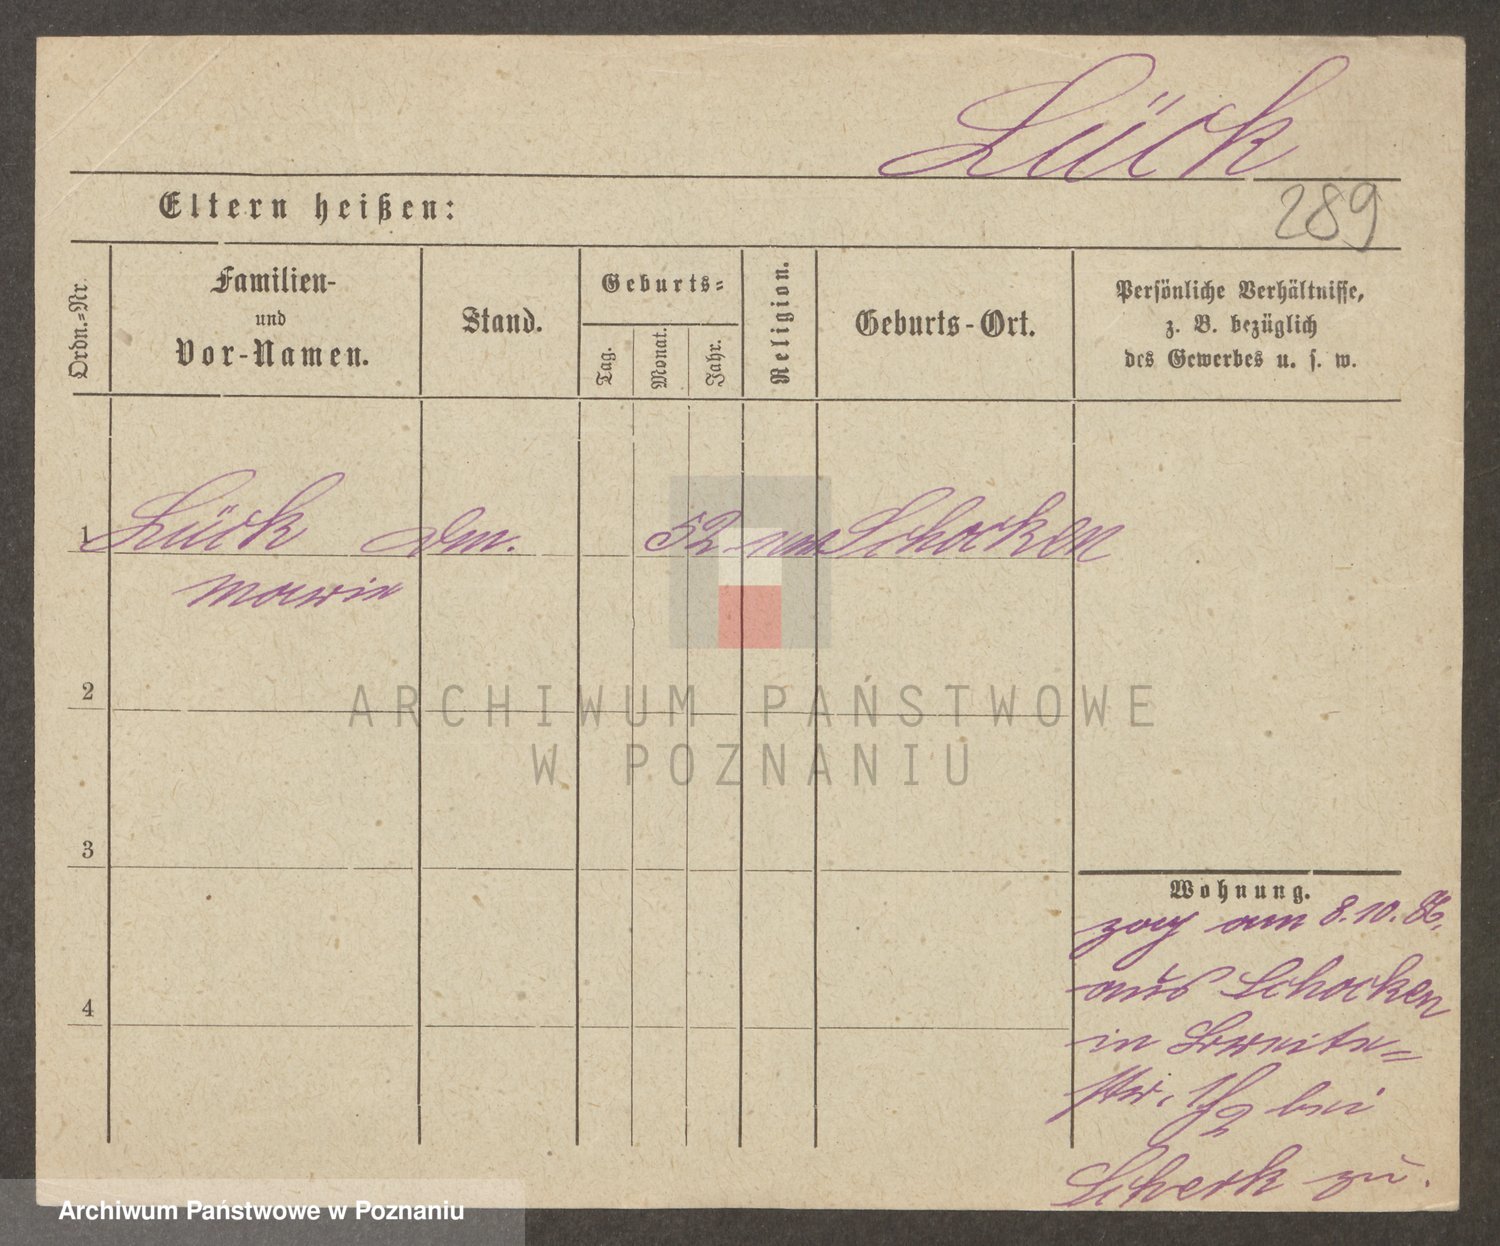 Lück
289
Eltern heißen:
Ordn.-Nr.
Familien-
und
Vor-Namen.
Stand.
Geburts-
Tag.
Monat.
Jahr.
Religion.
Geburts-Ort.
Persönliche Verhältnisse,
z. B. bezüglich
des Gewerbes u. s. w.
1 Lück 52 Schocken
Marie
2
ARCHIWUM PAŃSTWOWE
W POZNANIU
3
Wohnung.
zog am 8.10.86.
aus Schocken
in Breite-
str. 1/2 bei
Scherk zu.
4
Archiwum Państwowe w Poznaniu